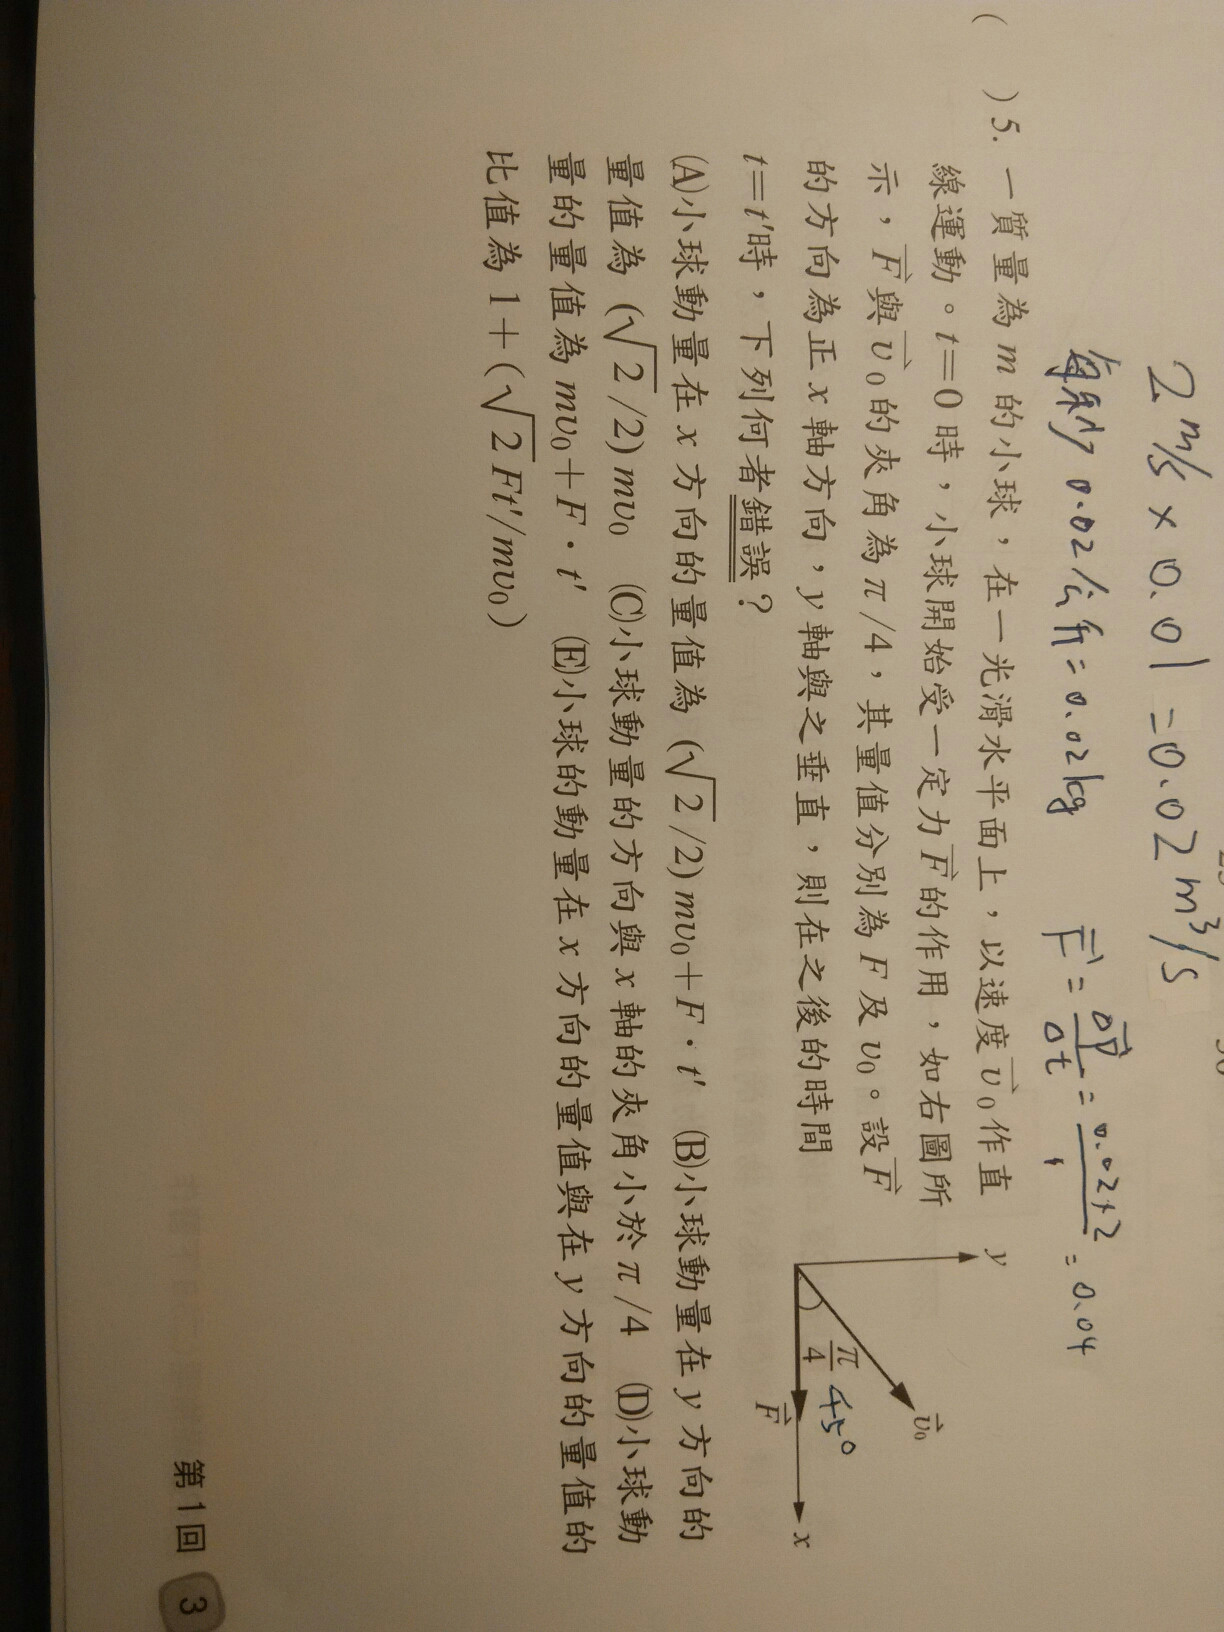 2 m/s × 0.01 = 0.02 m³/s
每秒 0.02公斤 = 0.02kg
F = ΔP/Δt = 0.02×2/1 = 0.04
( )5. 一質量為 m 的小球，在一光滑水平面上，以速度 v⃗₀ 作直
線運動。t＝0 時，小球開始受一定力 F⃗ 的作用，如右圖所
示，F⃗ 與 v⃗₀ 的夾角為 π/4，其量值分別為 F 及 v₀。設 F⃗
的方向為正 x 軸方向，y 軸與之垂直，則在之後的時間
t＝t′時，下列何者錯誤？
(A)小球動量在 x 方向的量值為 (√2/2)mv₀＋F·t′ (B)小球動量在 y 方向的
量值為 (√2/2)mv₀ (C)小球動量的方向與 x 軸的夾角小於 π/4 (D)小球動
量的量值為 mv₀＋F·t′ (E)小球的動量在 x 方向的量值與在 y 方向的量值的
比值為 1＋(√2Ft′/mv₀)
y
v⃗₀
π/4
45°
F⃗
x
第1回 3